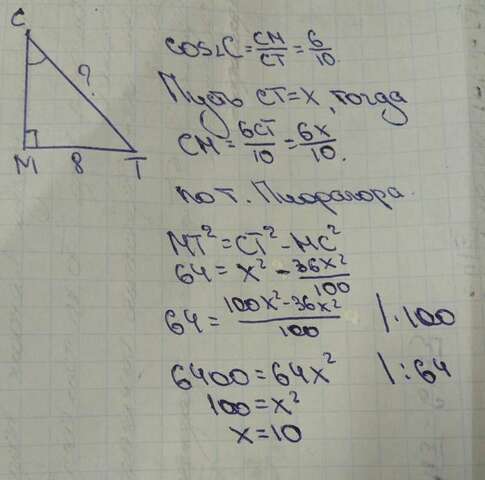 C
?
M 8 T
cos∠C = CM/CT = 6/10.
Пусть CT=x, тогда
CM = 6CT/10 = 6x/10.
по т. Пифагора.
MT² = CT² - MC²
64 = x² - 36x²/100
64 = 100x² - 36x²/100 |·100
6400 = 64x² |:64
100 = x²
x = 10